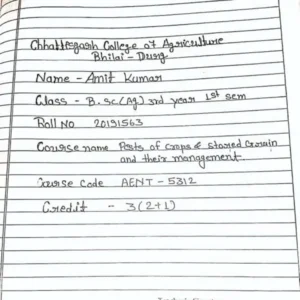 Chhattisgarh College of Agriculture
Bhilai - Durg
Name - Amit Kumar
Class - B.sc (Ag) 3rd year 1st sem
Roll No 20191563
Course name Pests of crops & stored Grain
and their management
Course Code AENT - 5312
Credit - 3(2+1)